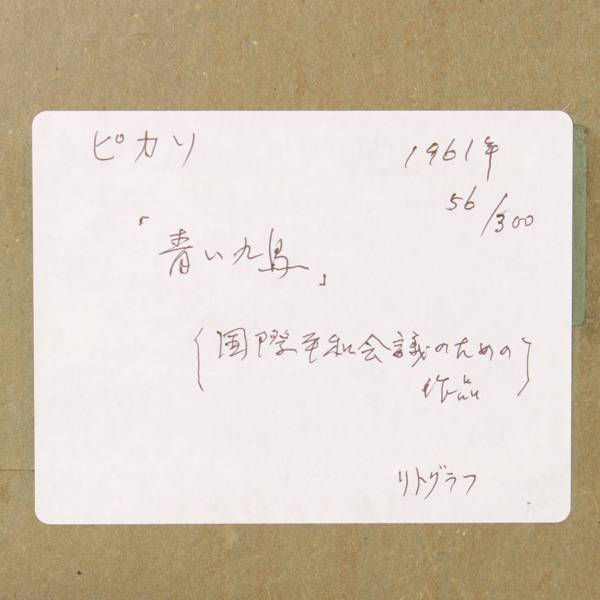 ピカソ
1961年
56/300
「青い鳩」
(国際平和会議のための
作品)
リトグラフ